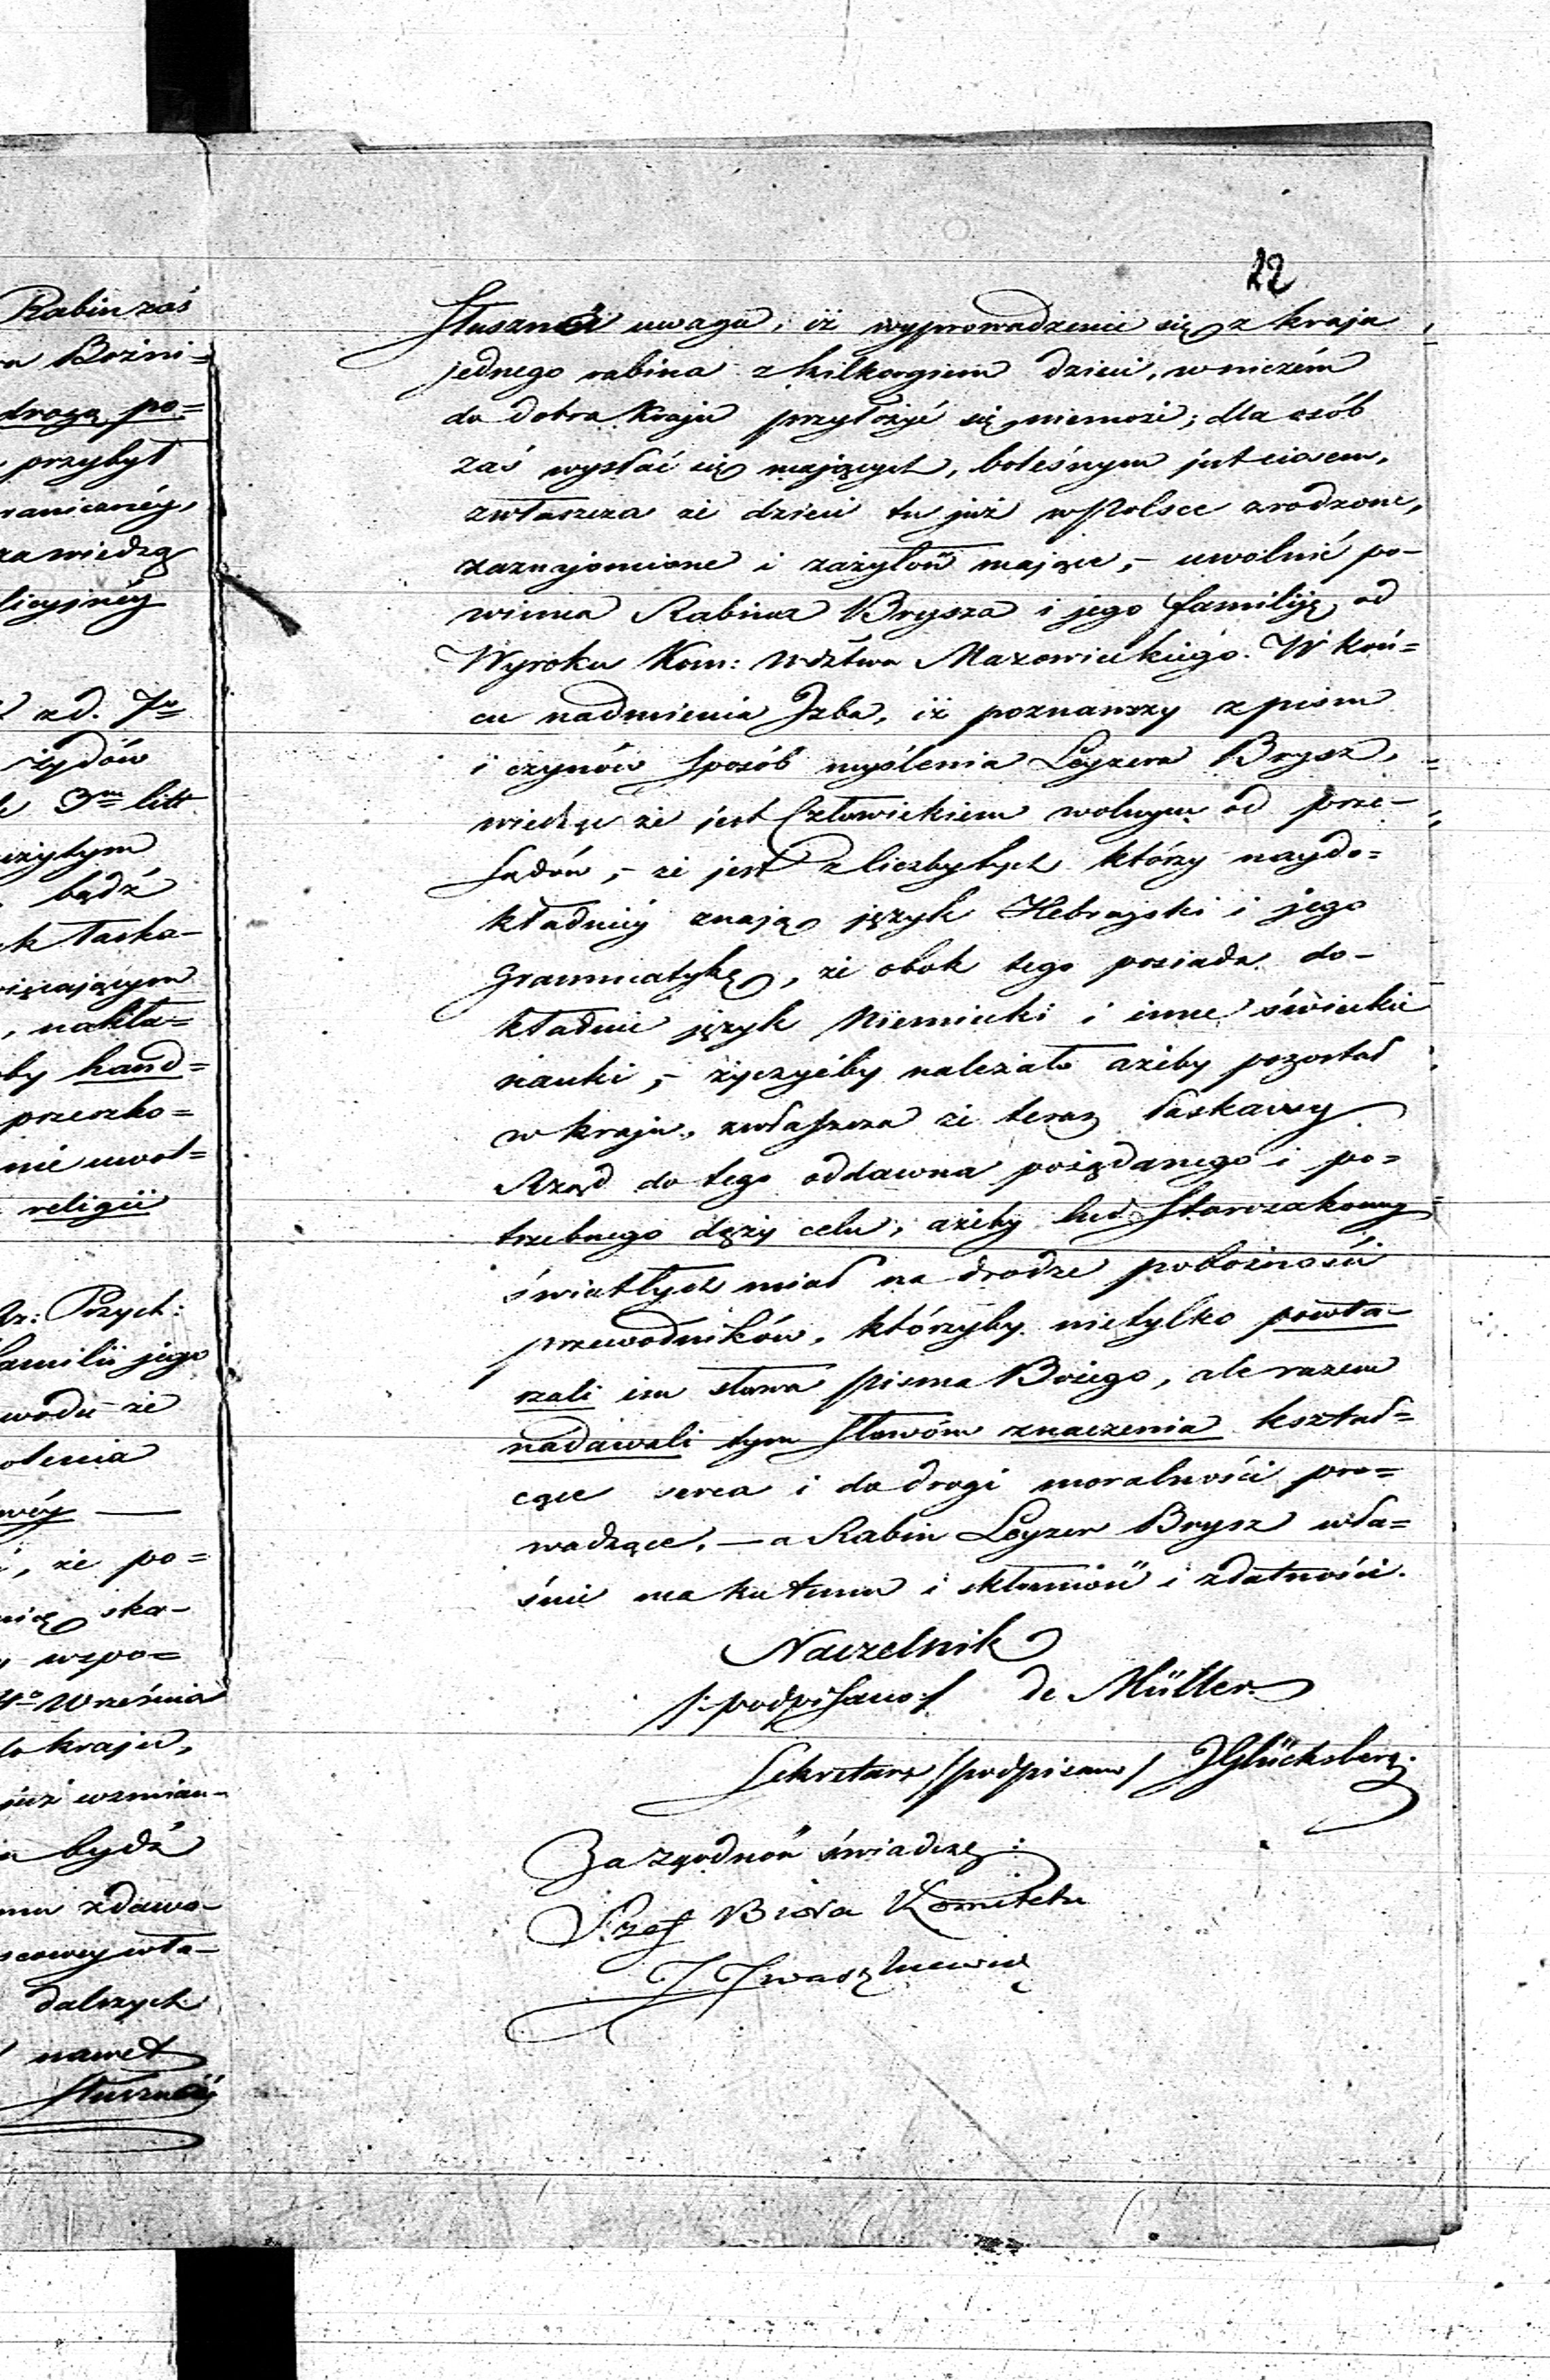 Rabin zaś
Bożni=
drogą po=
przybył
raniczney,
za wiedzą
licyjnéy
żydów
3m litt
bądź
taska-
nakła=
by hand=
przeszko=
nie uwol=
religii
Przych:
familii jego
wodu że
wéy —
, że po=
ska-
wspo=
Września
kraju,
już wzmian-
bydź
zdawo-
dalszych
nawet
słuszna
22
Słuszna uwaga, iż wyprowadzenie się z kraju
jednego rabina z kilkorgiem dzieci, w niczém
do dobra kraju przyłożyć się niemoże; dla osób
zaś wysłać się mających, boleśnym jest ciosem,
zwłaszcza że dzieci tu już w Polsce zrodzone,
zaznajomione i zażyłość mające, – uwolnić po-
winna Rabina Brysza i jego familiję od
Wyroku Kom: Wdztwa Mazowieckiego. W koń=
cu nadmienia Izba, iż poznawszy z pism
i czynów sposób myślenia Leyzera Brysz,
wiedząc że jest Człowiekiem wolnym od prze-
sądów, – że jest z liczby tych którzy naydo=
kładniéy znają język Hebrayski i jego
Grammatykę, że obok tego posiada do-
kładnie język Niemiecki i inne świeckie
nauki, – życzyćby należało ażeby pozostał
w kraju, zwłaszcza że teraz łaskawy
Rząd do tego oddawna pożądanego i po=
trzebnego dąży celu, ażeby lud Starozakonny
światłych miał na drodze pobożności
przewodników, którzyby nietylko powta-
rzali im słowa pisma Bożego, ale razem
nadawali tym słowóm znaczenia kształ=
cące serca i do drogi moralności pro=
wadzące, — a Rabin Leyzer Brysz wła=
śnie ma ku temu i skłonność i zdatności.
Naczelnik
/:podpisano:/ de Müller
Sekretarz /podpisano/ J Glücksberg.
Za zgodność świadczę:
Szef Biora Komitetu
J Iwaszkiewicz